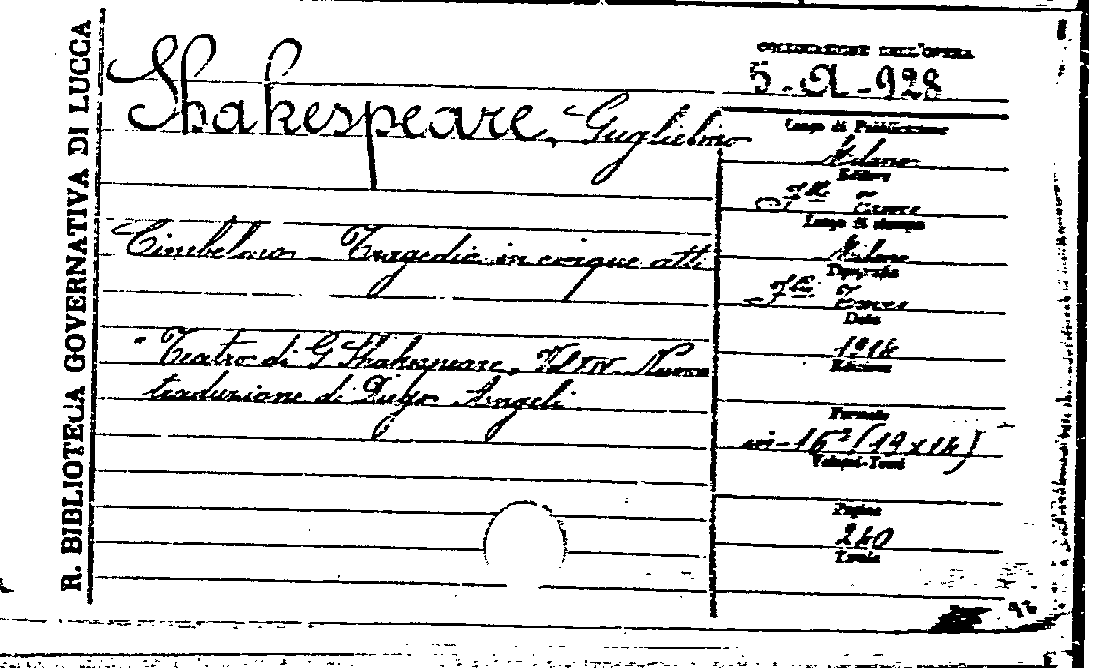 R. BIBLIOTECA GOVERNATIVA DI LUCCA
Shakespeare, Guglielmo
Cimbelino - Tragedia in cinque atti
"Teatro di G. Shakespeare, Vol XIV. Nuova
traduzione di Diego Angeli
COLLOCAZIONE DELL'OPERA
5-A-928
Luogo di Pubblicazione
Milano
Editore
F.lli Treves
Luogo di stampa
Milano
Tipografia
F.lli Treves
Data
1918
Edizione
Formato
in-16º (19x14)
Volumi-Tomi
Pagine
240
Tavole